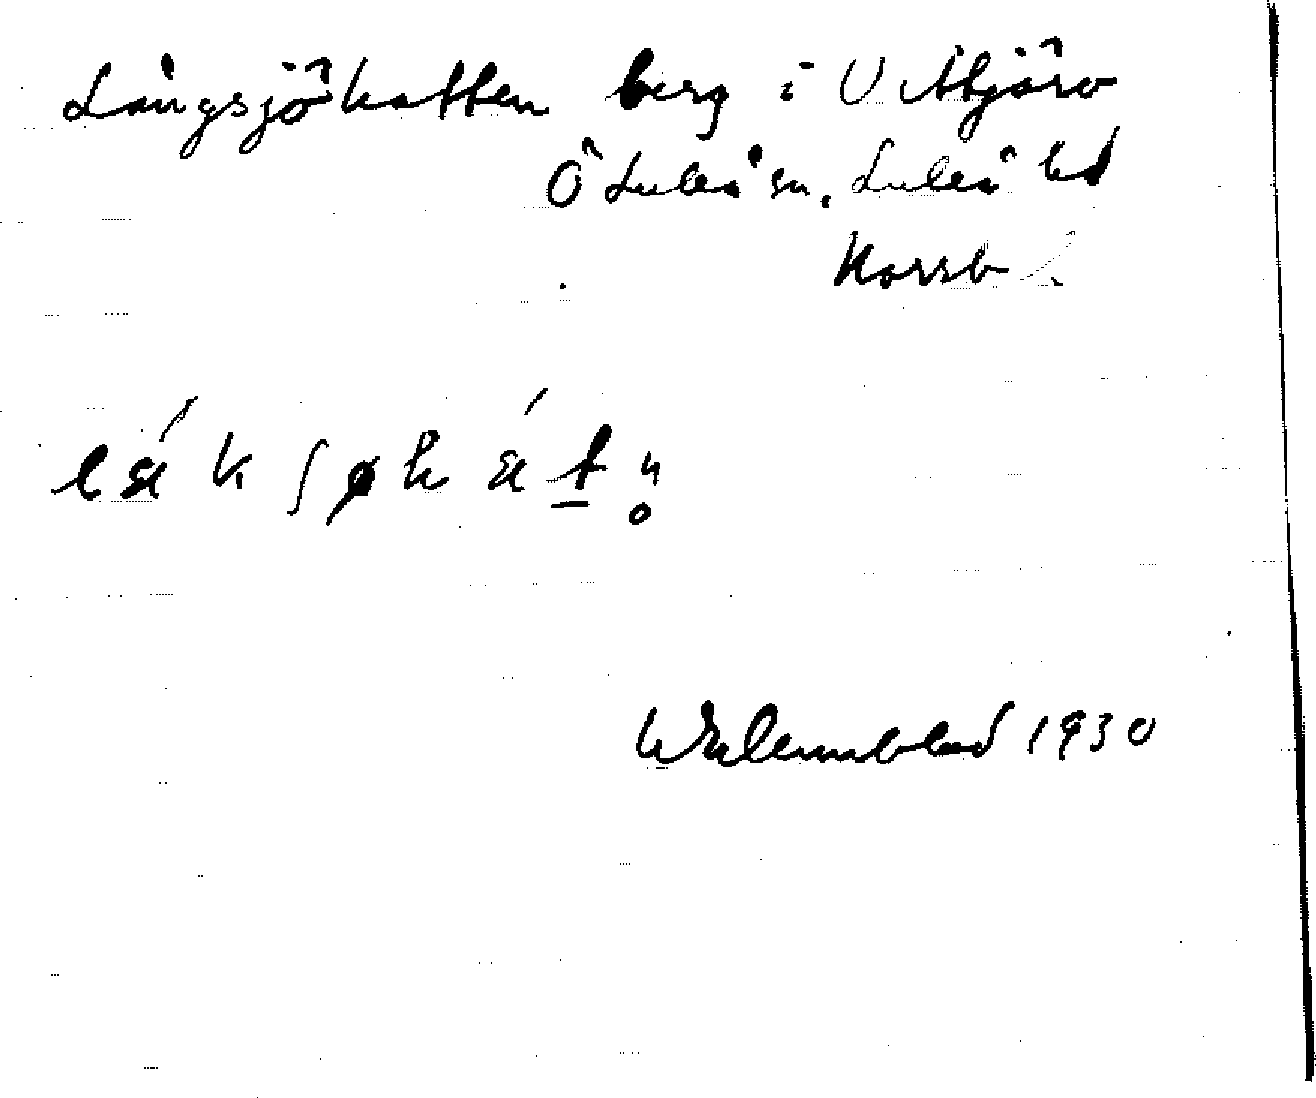 Långsjöhatten berg i V Mjärv
Ö Luleå sn, Luleå td
Norrb l.
lák ʃøh át̲n̥
Walennblad 1930